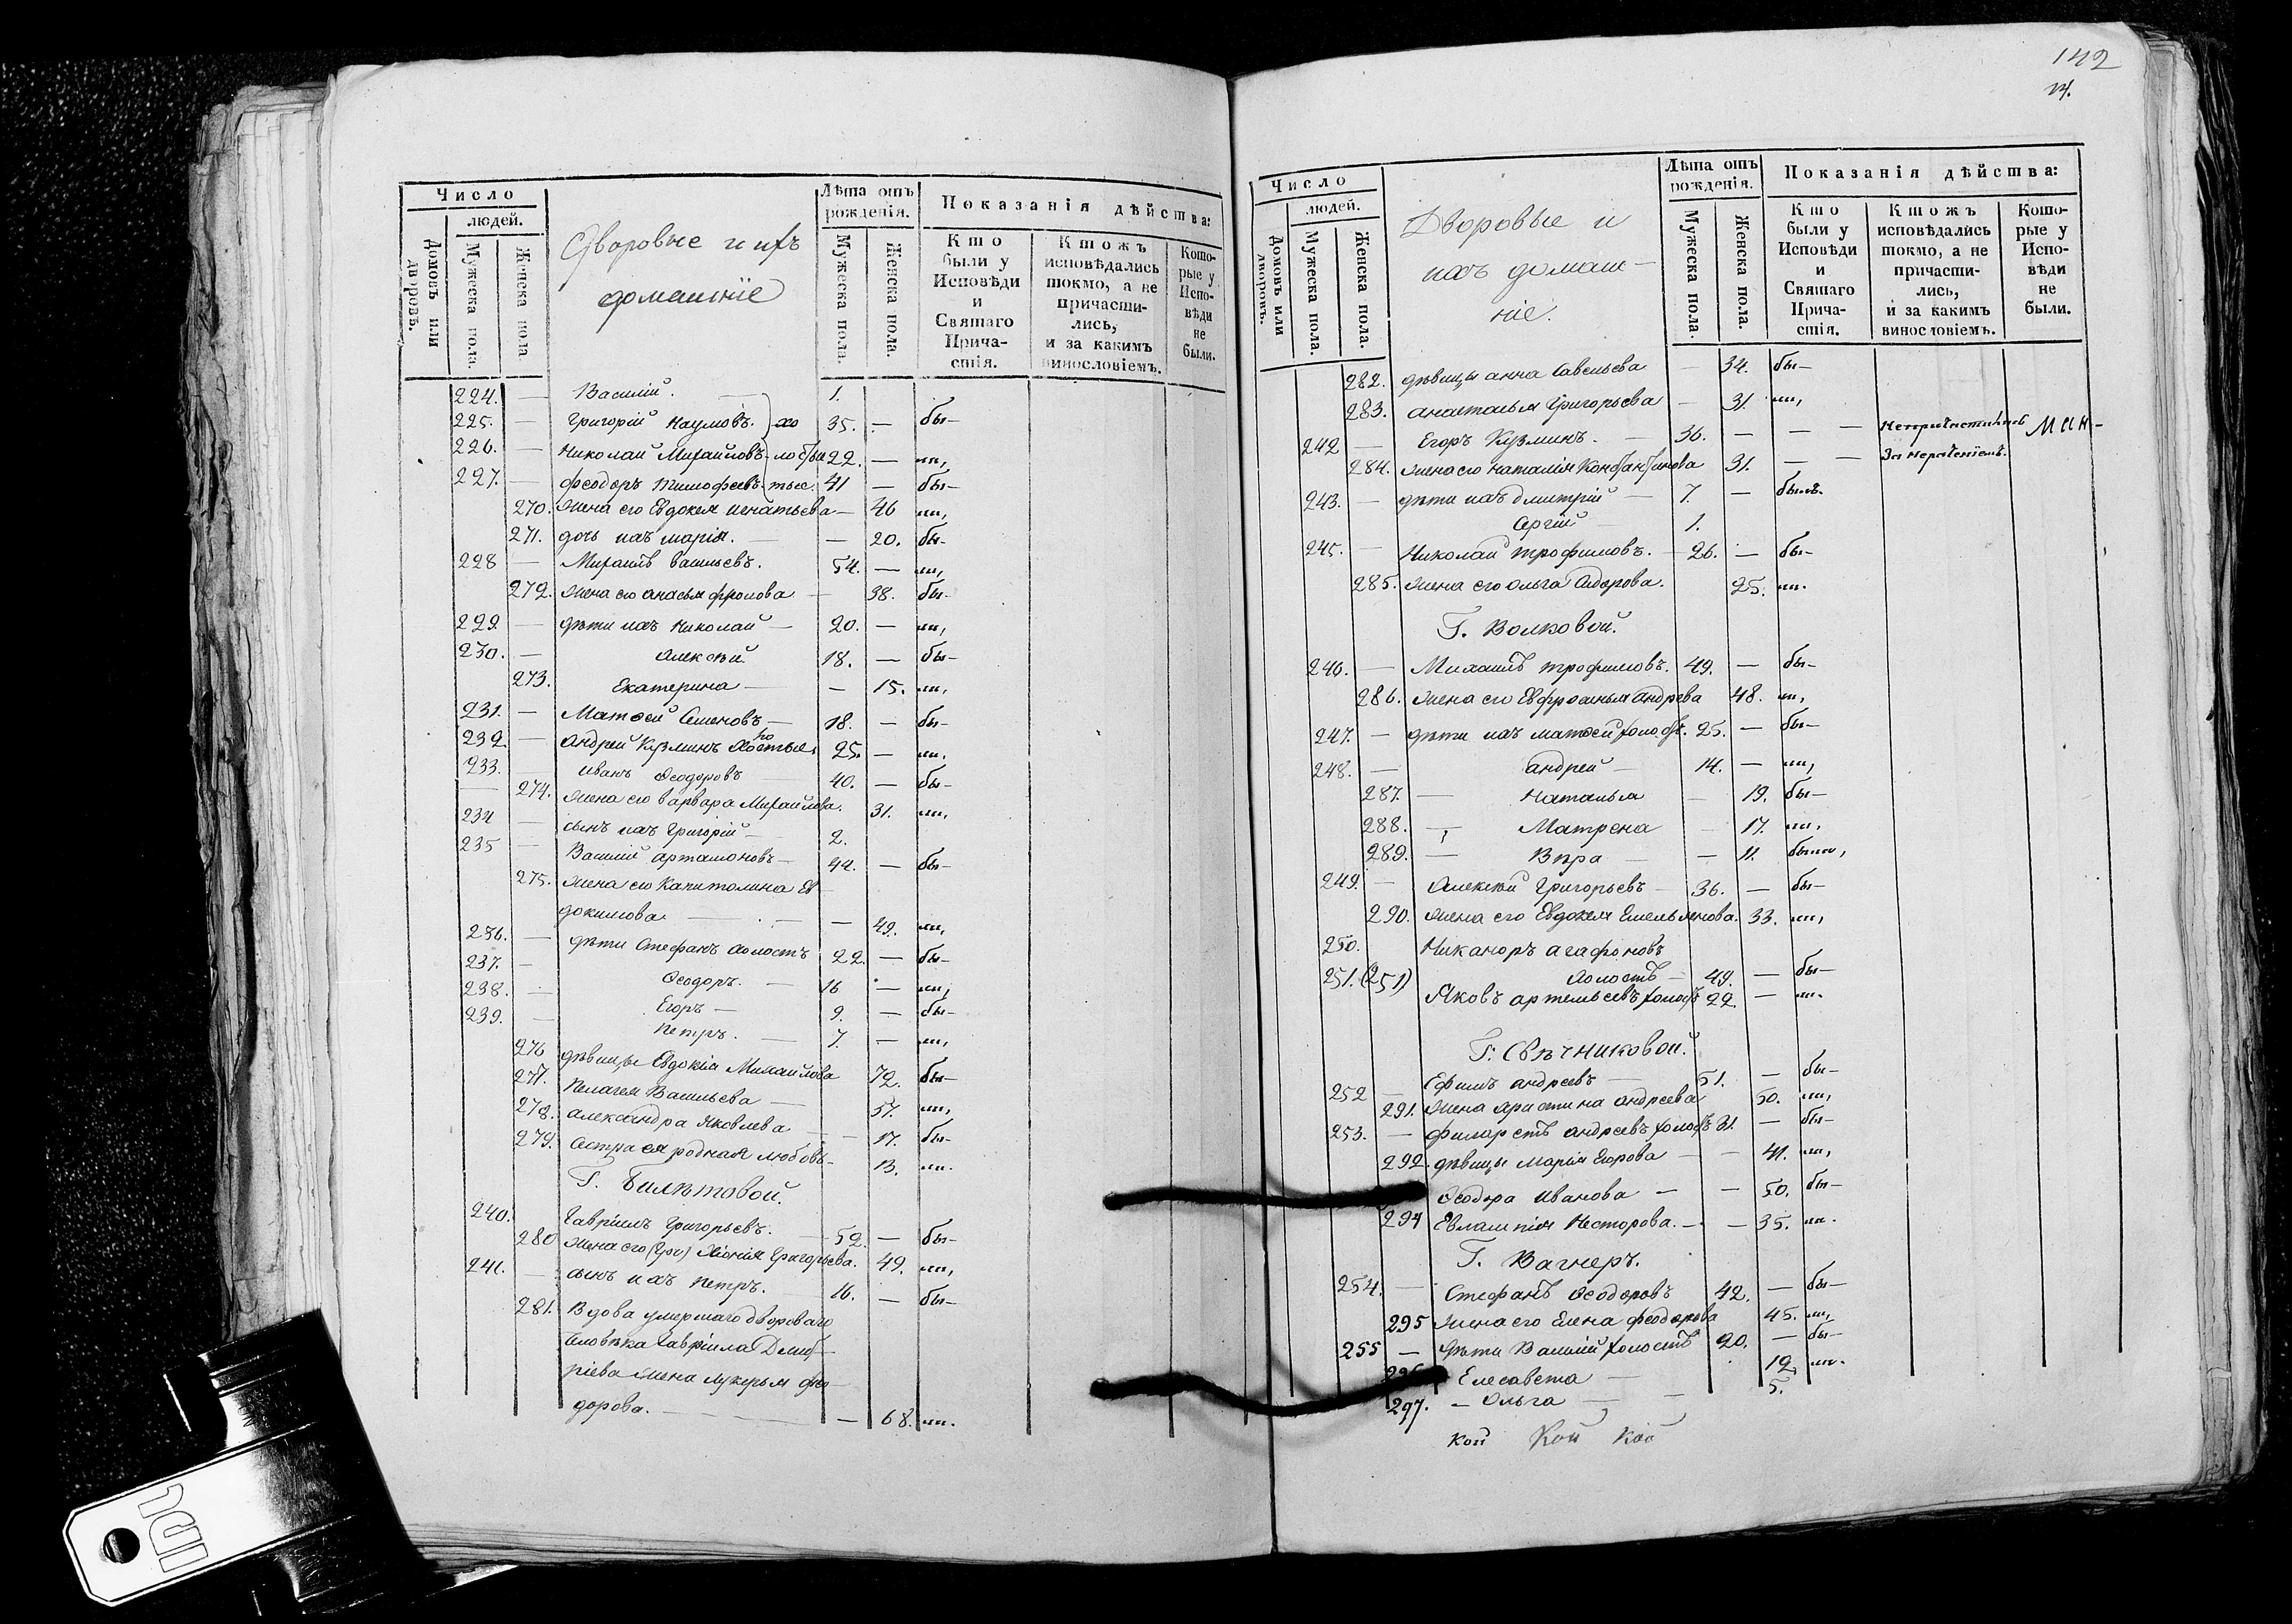 142
Число
людей.
Домовъ или дворовъ.
Мужеска пола.
Женска пола.
Дворовые и ихъ
домашніе
Лѣта отъ рожденія.
Мужеска пола.
Женска пола.
Показанія дѣйства:
Кто были у Исповѣди и Святаго Прича-стія.
Ктожъ исповѣдались токмо, а не причасти-лись, и за какимъ винословіемъ.
Кото-рые у Испо-вѣди не были.
224. — Василій. — 1.
225. — Григорій Наумовъ. хо 35. — бы—
226. — Николай Михайловъ лостые 22. — ли,
227. — Феодоръ Тимофеевъ 41 — бы—
270. жена его Евдокея Игнатьева — 46 ли,
271. дочь ихъ Марія. — — 20. бы-
228 — Михаилъ Васильевъ. 54. — ли,
272. жена его Анасья Фролова — 38. бы-
229 — дѣти ихъ Николай — 20. — ли,
230. — Алексѣй 18. — бы—
273. Екатерина — — 15. ли,
231. — Матвей Семеновъ — 18. — бы—
232 — Андрей Кузминъ Холостые 25. — ли.
233. Иванъ Ѳеодоровъ — 40. — бы—
— 274. жена его Варвара Михайлова. 31. ли,
234 — сынъ ихъ Григорій — 2.
235 — Василій Артамоновъ — 44. — бы—
275. жена его Капитолина Ев—
докимова — — — 49. ли,
236. — дѣти Стефанъ холостъ 22. — бы—
237. — Ѳеодоръ. — 16 — ли,
238. — Егоръ — 9. — бы—
239. — Петръ. — 7. — ли,
276 дѣвицы Евдокія Михайлова 72. бы—
277. Пелагея Васильева — 57. ли,
278. Александра Яковлева — — 17. бы-
279. Сестра ея родная Любовь- 13. ли.
Г. Билѣтовой.
240. Гавріилъ Григорьевъ. 52. — бы—
280 жена его (Гри) Хіонія Григорьева. 49. ли,
241. — сынъ ихъ Петръ. 16. — бы—
281. Вдова умершаго двороваго
человѣка Гавріила Дмит—
ріева жена Лукерья Фео—
дорова. — — — 68. ли.
Число
людей.
Домовъ или дворовъ.
Мужеска пола.
Женска пола.
Дворовые и
ихъ домаш—
ніе.
Лѣта отъ рожденія.
Мужеска пола.
Женска пола.
Показанія дѣйства:
Кто были у Исповѣди и Святаго Прича-стія.
Ктожъ исповѣдались токмо, а не причасти-лись, и за какимъ винословіемъ.
Кото-рые у Испо-вѣди не были.
282. дѣвицы Анна Савельева — 34. бы—
283. Анастасья Григорьева — 31. ли,
242 — Егоръ Кузминъ. — 36. — — —
284. жена его Наталія Константинова 31. — — За нераченіемъ.
243. — дѣти ихъ Дмитрій — 7. — былъ.
Сергій — 1.
245. — Николай Трофимовъ. — 26. — бы—
285. жена его Ольга Сидорова. 25. ли.
Г. Волковой.
246. — Михаилъ Трофимовъ. 49. — бы—
286. жена его Евфросинья Андреева 48. ли,
247. — дѣти ихъ Матвей холостъ. 25. — бы—
248. — Андрей — 14. — ли,
287. — Наталья — 19. бы—
288. — Матрена — 17. ли,
289. — Вѣра — — 11. были,
249. — Алексѣй Григорьевъ — 36. — бы—
290. жена его Евдокея Емельянова. 33. ли,
250. Никаноръ Агафоновъ
холостъ — 49. — бы—
251. (251) Яковъ Артемьевъ холостъ 22 — ли.
Г. Свѣчниковой.
252 — Ефимъ Андреевъ — 51. — бы—
291. жена Христина Андреева 50. ли,
253. — Филаретъ Андреевъ холостъ 31. — бы—
292. дѣвицы Марія Егорова — — 41. ли,
Ѳеодора Иванова — — 50. бы—
294 Евлампія Несторова. — — 35. ли.
Г. Вагнеръ.
254. — Стефанъ Ѳеодоровъ 42. — бы—
295 жена его Елена Феодорова 45. ли,
255 — дѣти Василій холостъ 20. — бы—
Елесавета — 12 ли.
297. — Ольга — — 5.
кой Кой Кой